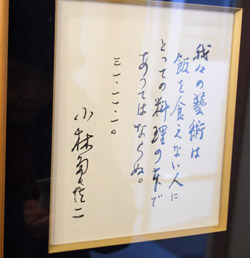 我々の藝術は
飯を食えない人に
とっての料理の東で
あってはならぬ。
三一・一一・一。
小林多喜二